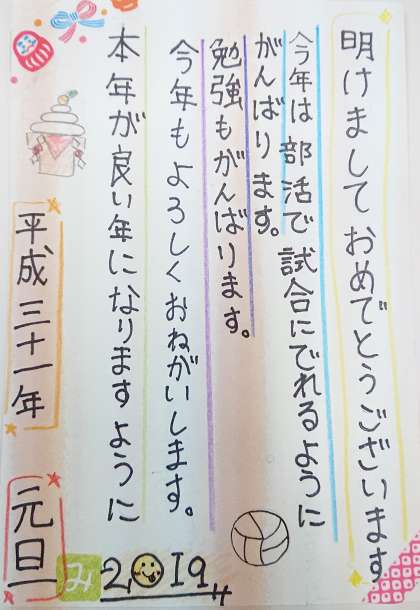 明けましておめでとうございます
今年は部活で試合にでれるように
がんばります。
勉強もがんばります。
今年もよろしくおねがいします。
本年が良い年になりますように
平成三十一年
元旦
み
2019